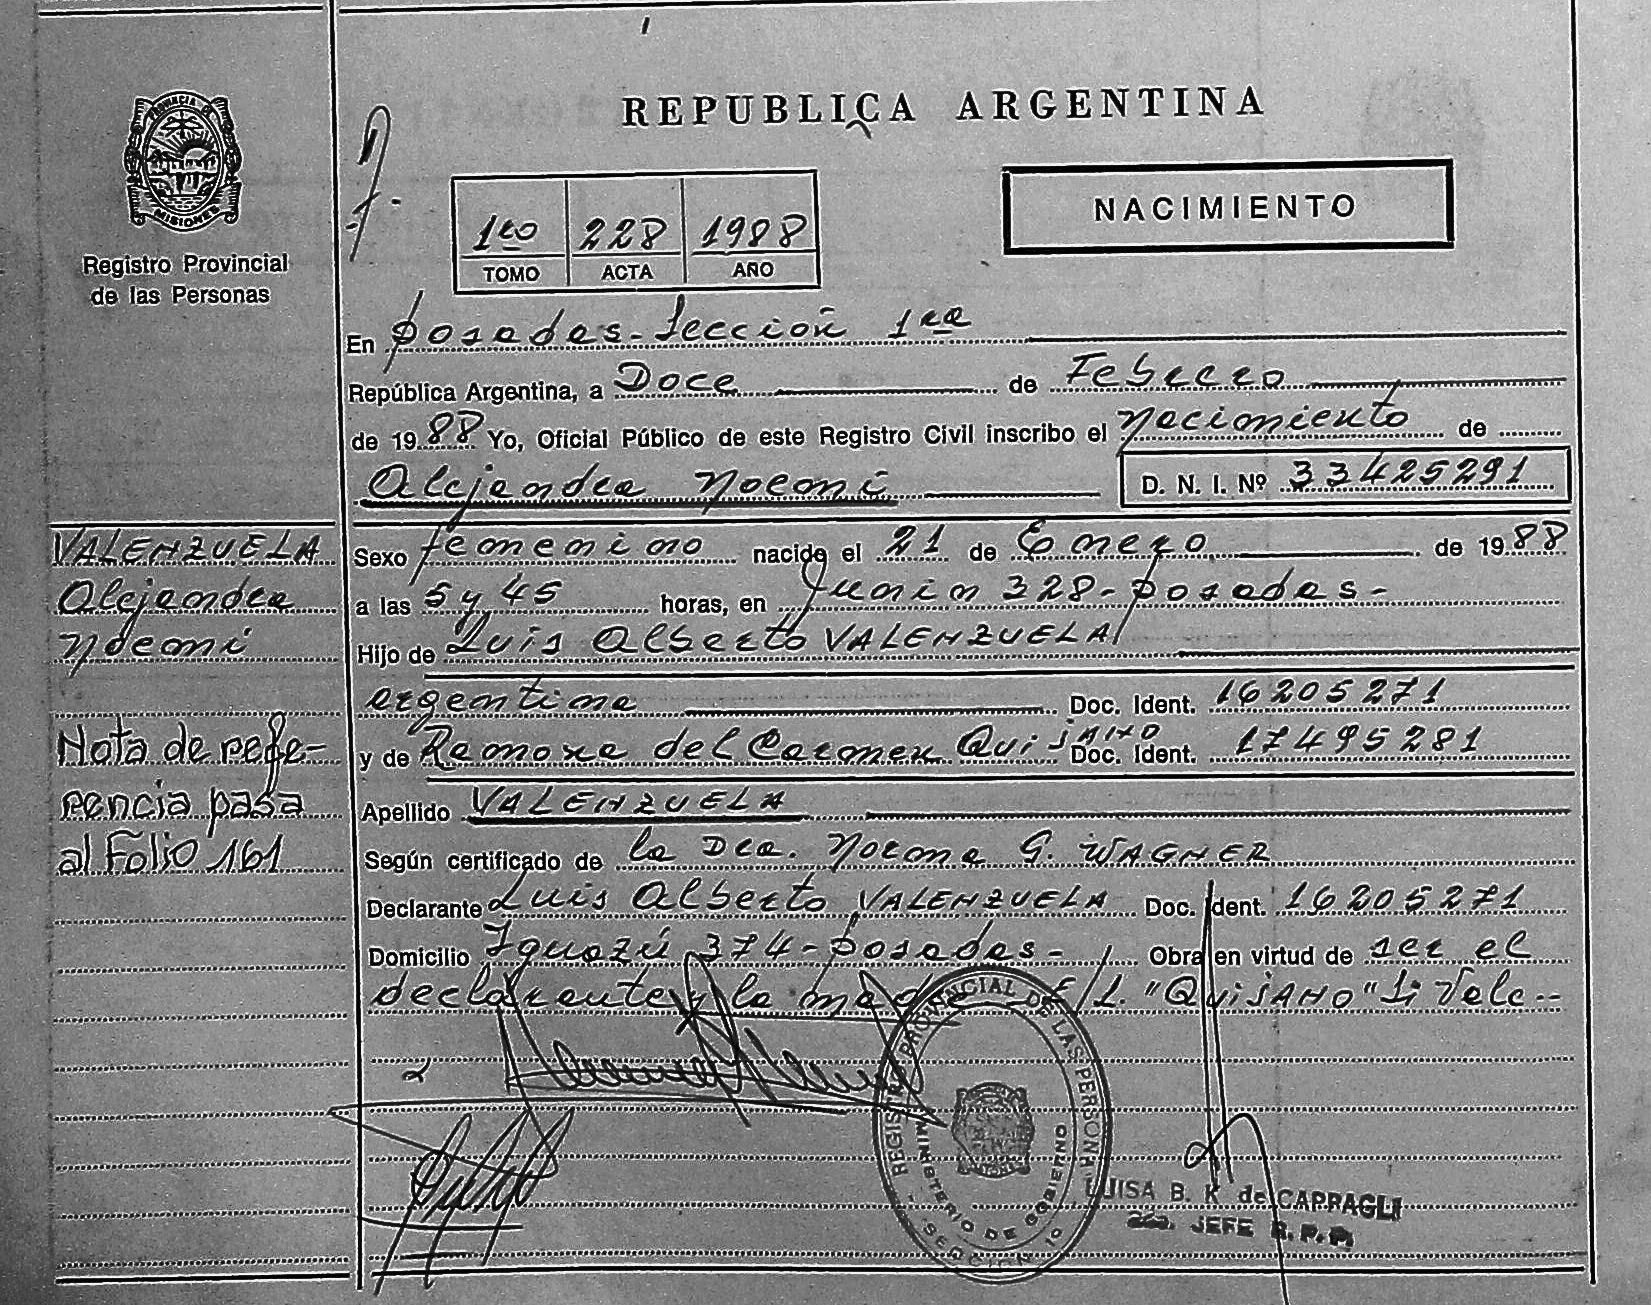 REPUBLICA ARGENTINA
PROVINCIA DE
MISIONES
Registro Provincial
de las Personas
1ro 228 1988
TOMO ACTA AÑO
NACIMIENTO
En Posadas-Sección 1ra
República Argentina, a Doce de Febrero
de 1988 Yo, Oficial Público de este Registro Civil inscribo el Nacimiento de
Alejandra Noemi D. N. I. Nº 33425291
VALENZUELA
Alejandra
Noemi
Nota de refe-
rencia pasa
al Folio 161
Sexo femenino nacida el 21 de Enero de 1988
a las 5 y 45 horas, en Junin 328-Posadas-
Hijo de Luis Alberto VALENZUELA
argentino Doc. Ident. 16205271
y de Ramona del Carmen QuiJANO Doc. Ident. 17495281
Apellido VALENZUELA
Según certificado de la Dra. Norma G. WAGNER
Declarante Luis Alberto VALENZUELA Doc. Ident. 16205271
Domicilio Iguazú 374-Posadas- Obra en virtud de ser el
declarante y la madre E/L. "QuiJANO" Si Vale--
REGISTRO PROVINCIAL DE LAS PERSONAS
MINISTERIO DE GOBIERNO
SECCION 10
LUISA B. K de CAPRAGLI
JEFE R. P. P.